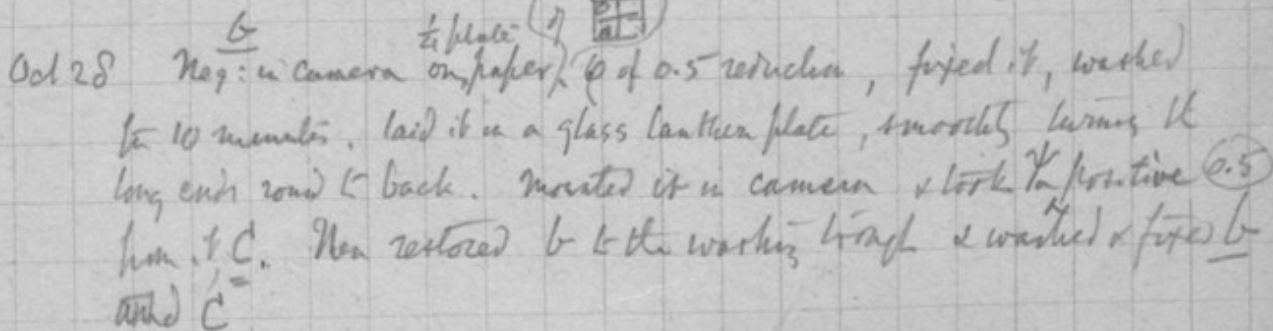 b ¼ plate of
Oct 28 Neg: in camera on paper φ of 0.5 reduction, fixed it, washed
for 10 minutes, laid it on a glass lantern plate, smoothly turning the
long ends round to back. Mounted it in camera & took ψ a positive 0.5
from it C. Then restored b to the washing trough & washed & fixed b
and C